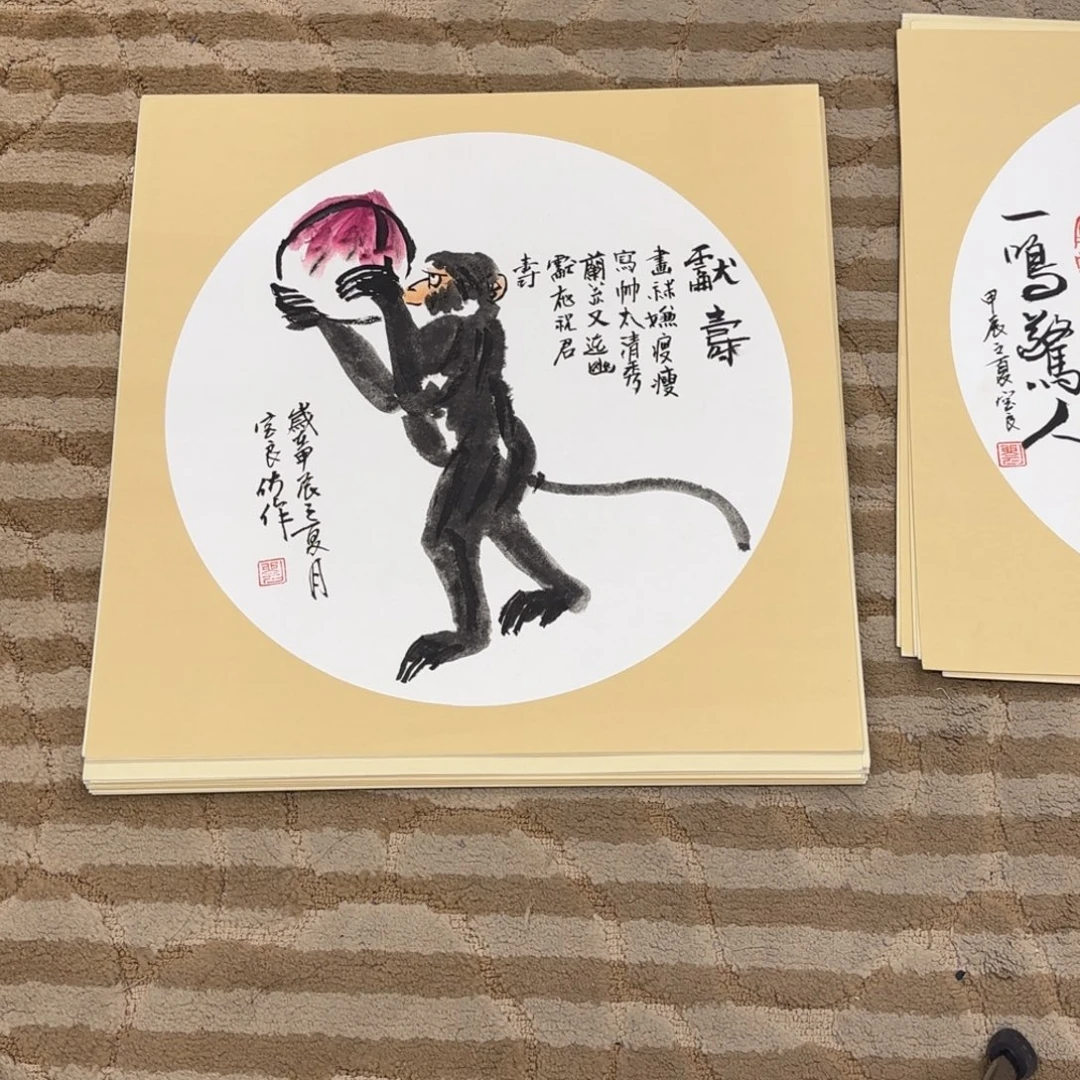 獻壽
畫嫌瘦瘦
寫帥太清秀
蘭並又幽
祝君
壽
歲在甲辰之夏月
宝良仿作
一鳴驚人
甲辰之夏宝良